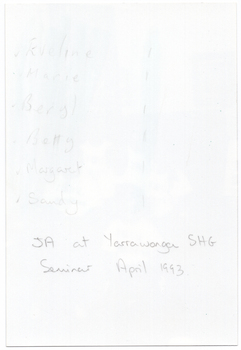 Eveline 1
Marie 1
Beryl 1
Betty 1
Margaret 1
Sandy 1
JA at Yarrawonga SHG
Seminar April 1993